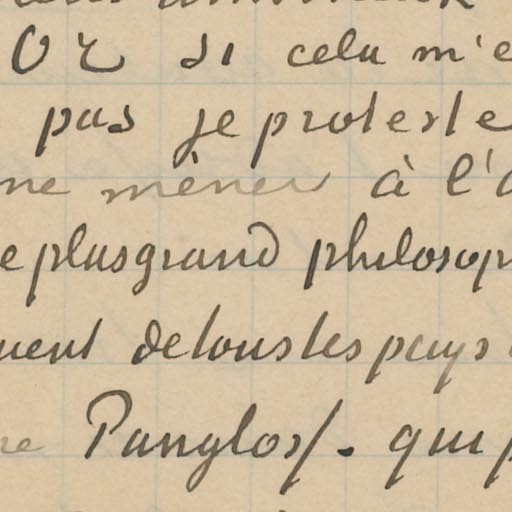 Or si cela m'e
pas je proteste
me mèner à l'a
e plus grand philosop
uent de tous les pays
ne Pangloss. qui p